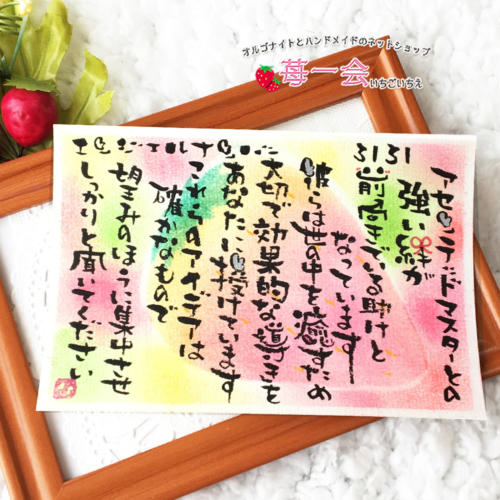 オルゴナイトとハンドメイドのネットショップ
苺一会
いちごいちえ
エンジェルナンバー
3131
アセンデッドマスターとの
強い絆が
前向きている助けと
なっています
彼らは世の中を癒すため
大切で効果的な導きを
あなたに授けています
これらのアイデアは
確かなもので
望みのほうに集中させ
しっかりと聞いてください